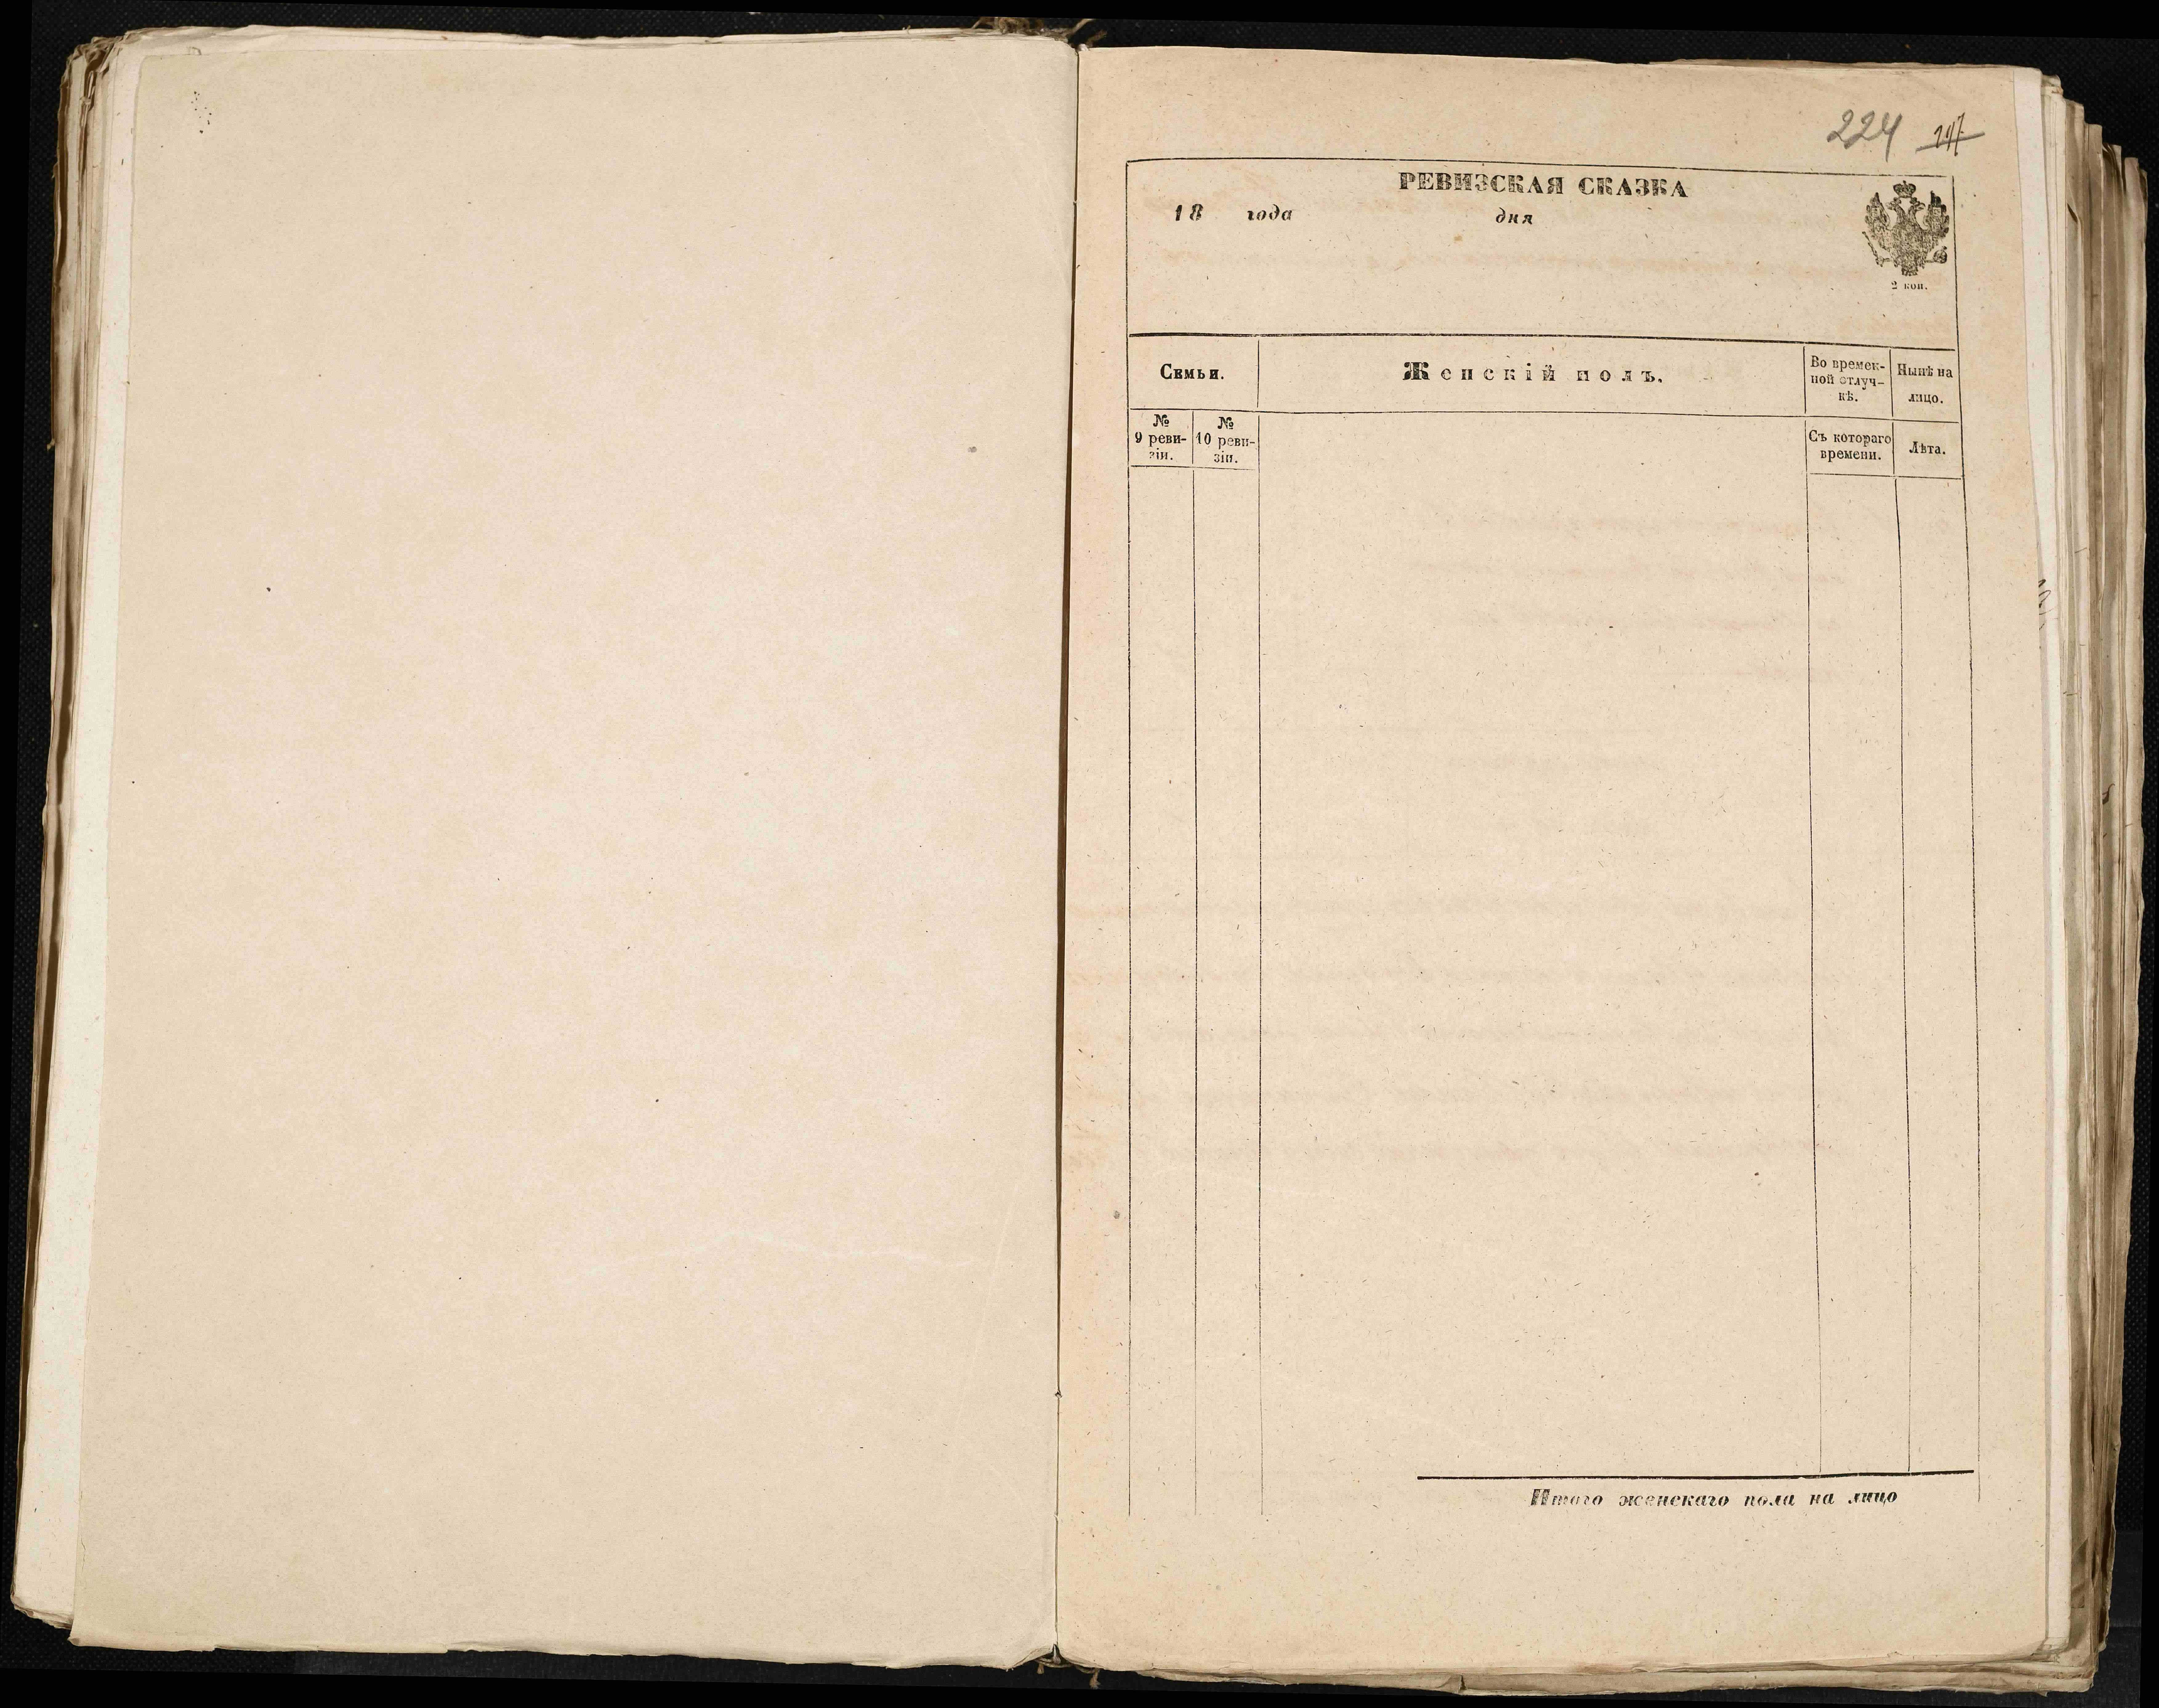 224
РЕВИЗСКАЯ СКАЗКА
18 года дня
2 коп.
Семьи.
Женскій полъ.
Во времен-
ной отлуч-
кѣ.
Нынѣ на
лицо.
№
9 реви-
зіи.
№
10 реви-
зіи.
Съ котораго
времени.
Лѣта.
Итого женскаго пола на лицо